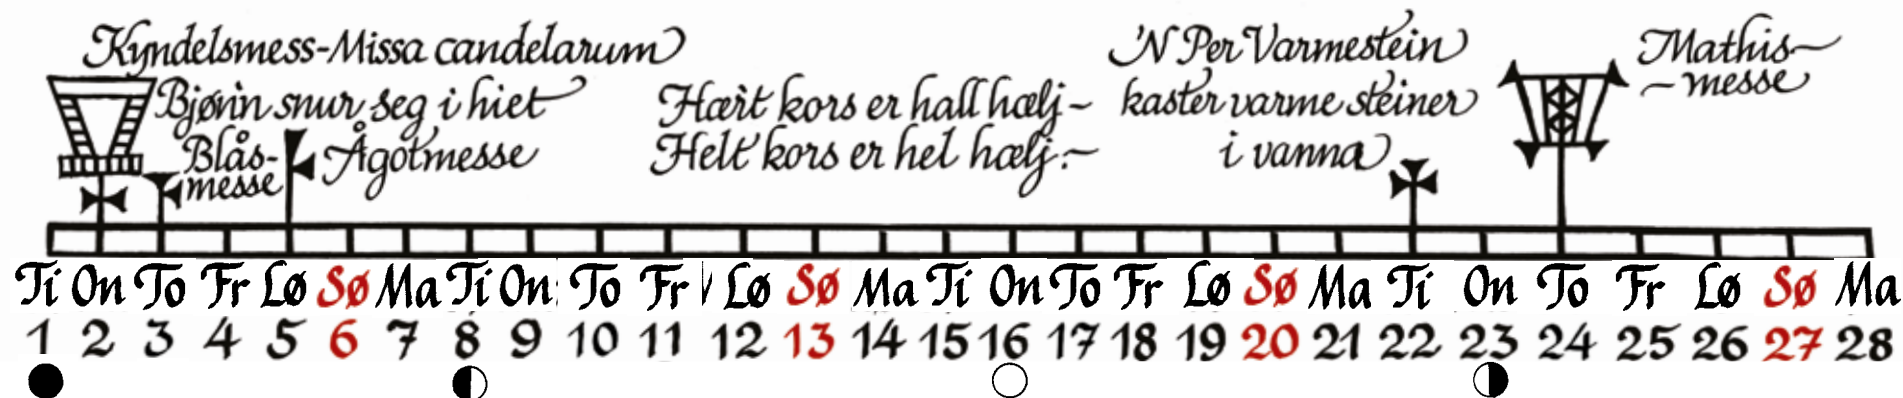 Kyndelsmess-Missa candelarum
Bjønn snur seg i hiet
Blås-
messe
Ågotmesse
Hært kors er hall hælj-
Helt kors er hel hælj:-
'N Per Varmestein
kaster varme steiner
i vanna
Mathis-
-messe
Ti On To Fr Lø Sø Ma Ti On To Fr Lø Sø Ma Ti On To Fr Lø Sø Ma Ti On To Fr Lø Sø Ma
1 2 3 4 5 6 7 8 9 10 11 12 13 14 15 16 17 18 19 20 21 22 23 24 25 26 27 28